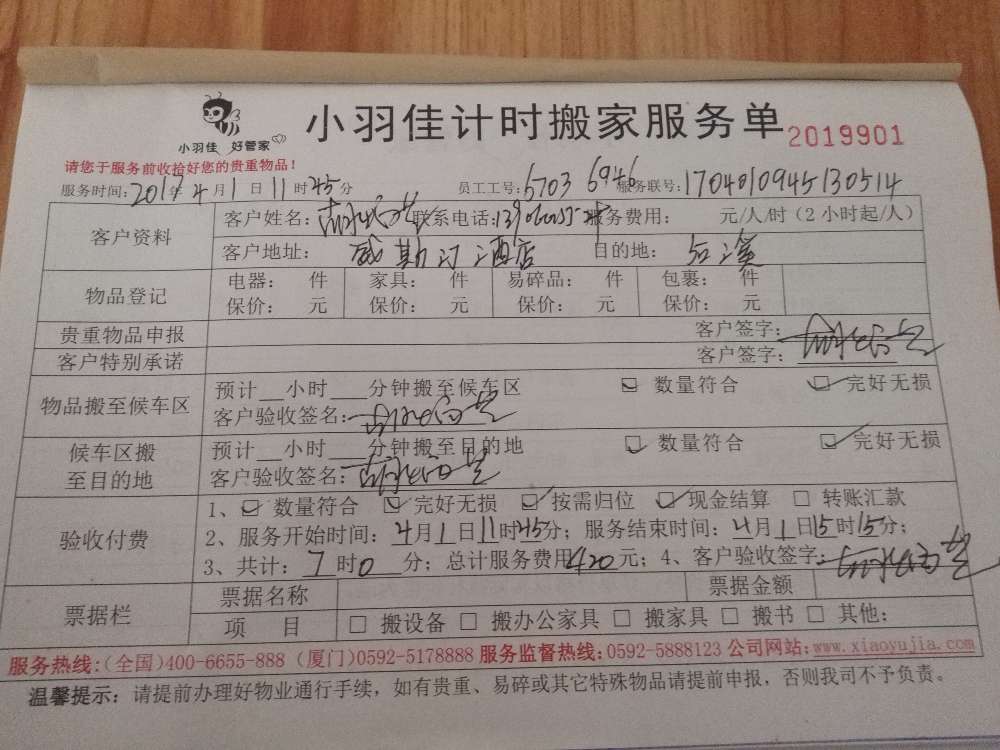 小羽佳 好管家
小羽佳计时搬家服务单 2019901
请您于服务前收拾好您的贵重物品!
服务时间:2017年4月1日11时45分 员工工号:6703 6946 服务联号:170401094513 0514
客户资料 客户姓名: 联系电话: 服务费用: 元/人/时(2小时起/人)
客户地址: 威斯汀酒店 目的地: 后溪
物品登记 电器: 件 家具: 件 易碎品: 件 包裹: 件
保价: 元 保价: 元 保价: 元 保价: 元
贵重物品申报 客户签字:
客户特别承诺 客户签字:
物品搬至候车区 预计__小时___分钟搬至候车区 ☑ 数量符合 ☑ 完好无损
客户验收签名:
候车区搬至目的地 预计__小时___分钟搬至目的地 ☑ 数量符合 ☑ 完好无损
客户验收签名:
验收付费 1、☑ 数量符合 ☑ 完好无损 ☑ 按需归位 ☑ 现金结算 □ 转账汇款
2、服务开始时间:4月1日11时45分;服务结束时间:4月1日15时15分;
3、共计:7时0分;总计服务费用420元;4、客户验收签字:
票据栏 票据名称 票据金额
项 目 □ 搬设备 □ 搬办公家具 □ 搬家具 □ 搬书 □ 其他:
服务热线:(全国)400-6655-888 (厦门)0592-5178888 服务监督热线:0592-5888123 公司网站:www.xiaoyujia.com
温馨提示:请提前办理好物业通行手续,如有贵重、易碎或其它特殊物品请提前申报,否则我司不予负责。